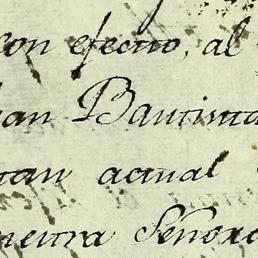 con efecto, al
uan Bautista
tan actual
nuestra Señora